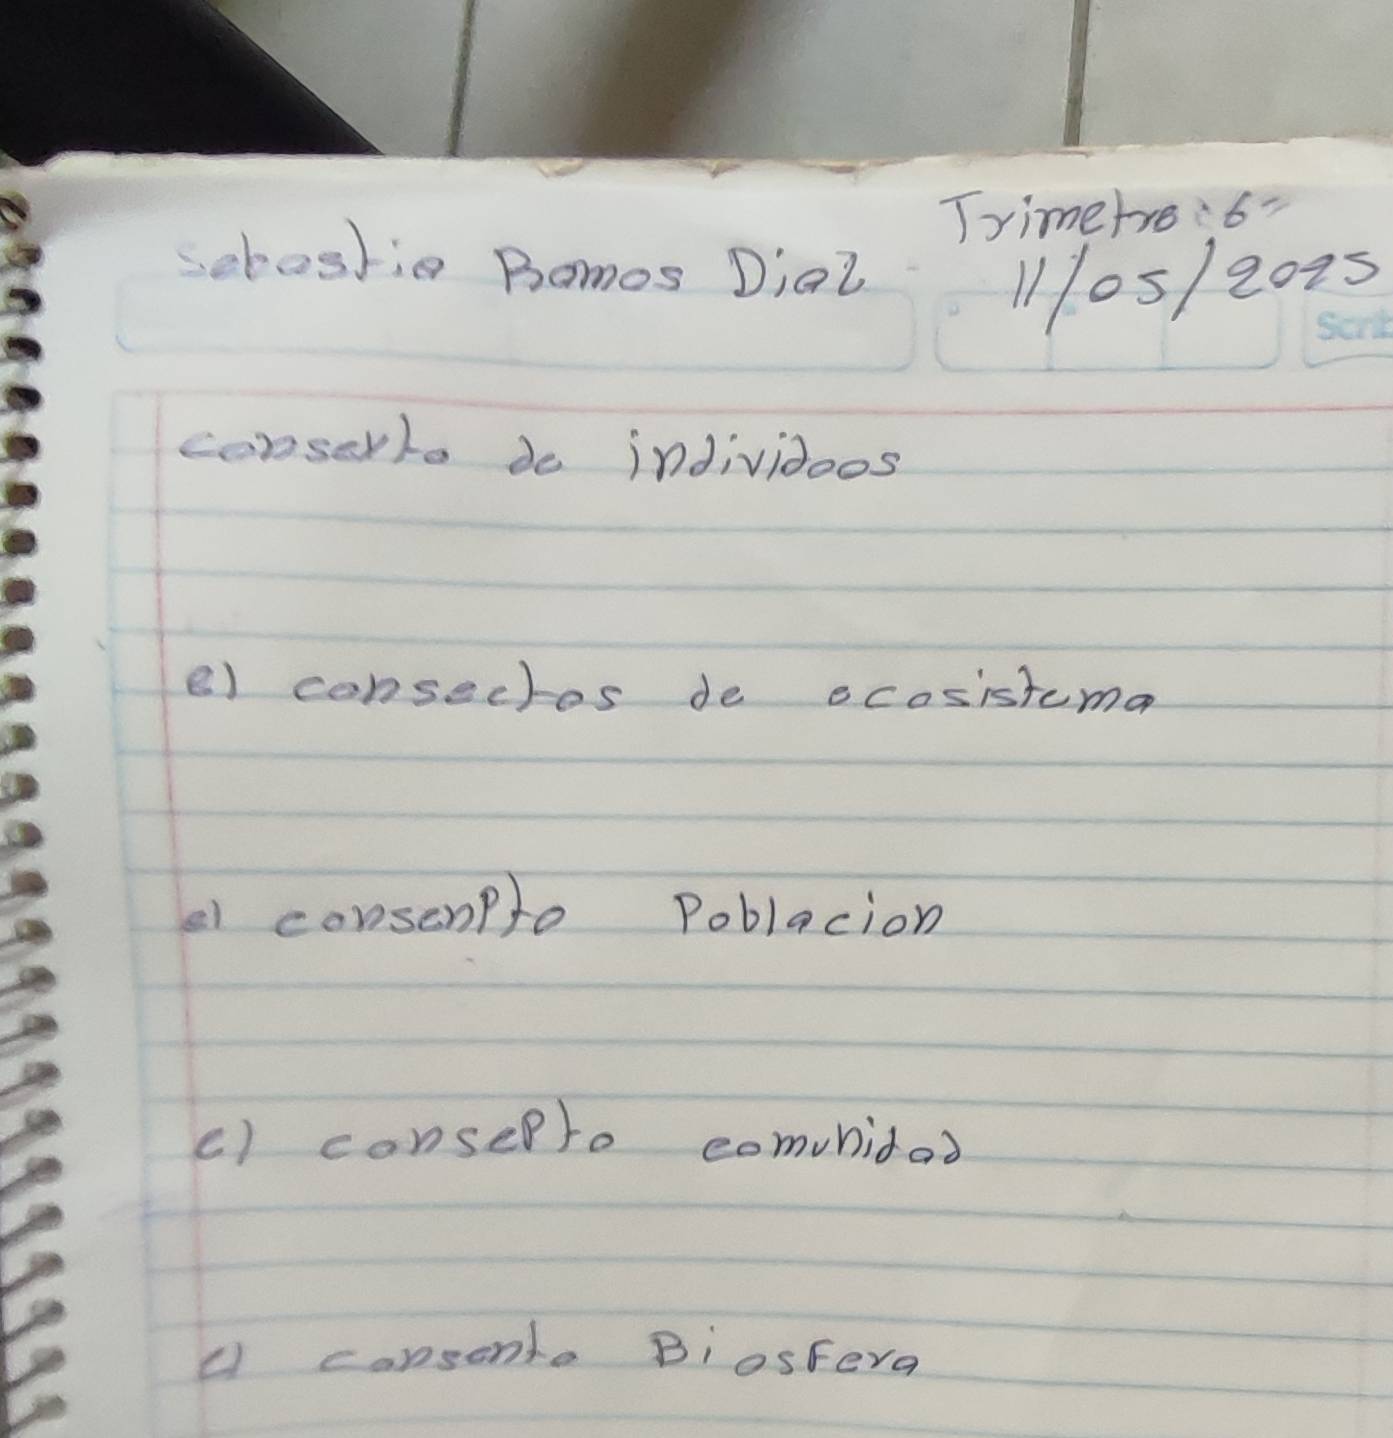 Trimetro: 6°
Sebastia Ramos Diaz 11/05/2025
Scrib
conserto de individoos
e) consectos de ecosistema
e) consenpto Poblacion
c) consepto comunidad
c) consento Biosfera